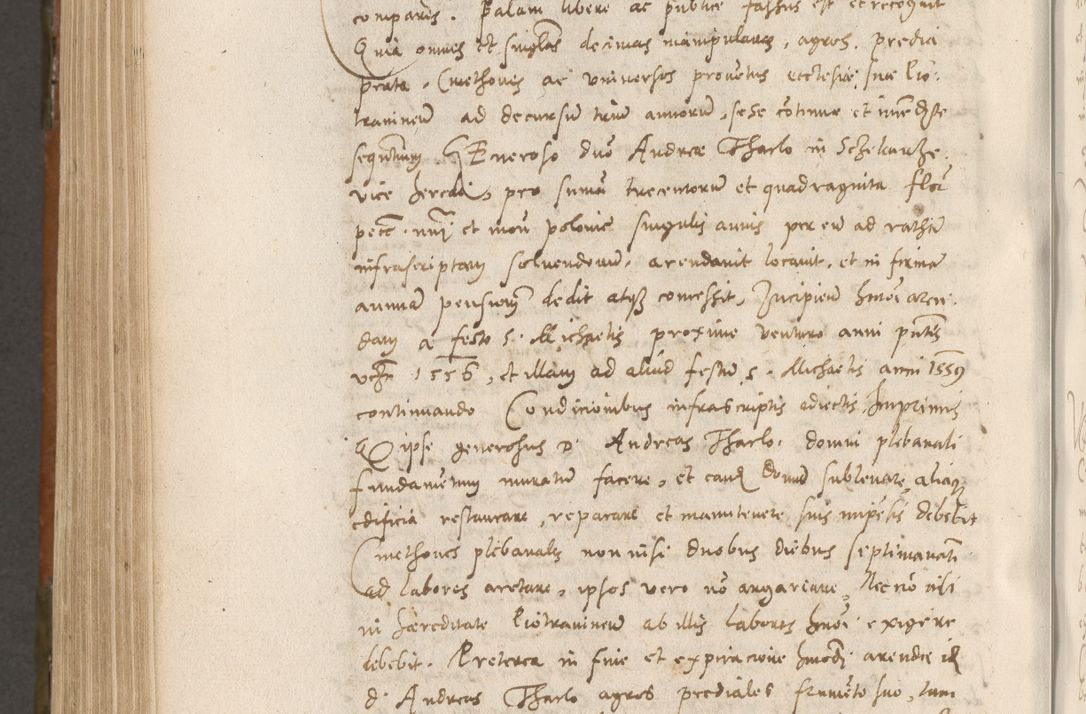 comparens. Palam libere ac publice fassus est et recognovit
Quia omnes et singlas decimas manipulares, agros, predia
prata, Cmethones ac universos proventus ecclesie sue Pio-
travinen ad decursum trium annorum, sese continue et immediate
sequentium GEneroso dno Andree Tharlo in Sczekarzo-
vice heredi, pro summa trecentorum et quadraginta flor
pecc. mri et mon polonie singulis annis per eum ad ratham
infrascriptam solvendorum, arendavit locavit, et in firmam
annuam pensionem dedit atq3 concessit, Incipien hmoi aren-
dam a festo S. Michaelis proxime venturo anni pntis
vz 1556, et illam ad aliud festum S. Michaelis anni 1559
continuando Condicionibus infrascriptis adiectis, Imprimis
Q ipse generosus D. Andreas Tharlo. domui plebanali
fundamentum muratum facere, et eand domum sublevare, aliaq3
edificia restaurare, reparare et manutenere suis impensis debebit
Cmethones plebanales non nisi duobus diebus septimanatim
ad labores arctare, ipsos vero no angariare, Nec no nisi
in hereditate Piotravinen ab illis labores hmoi exigere
debebit. Preterea in fine et expiracione hmodi arende id
d. Andreas Tharlo agros prediales frumento suo, tam